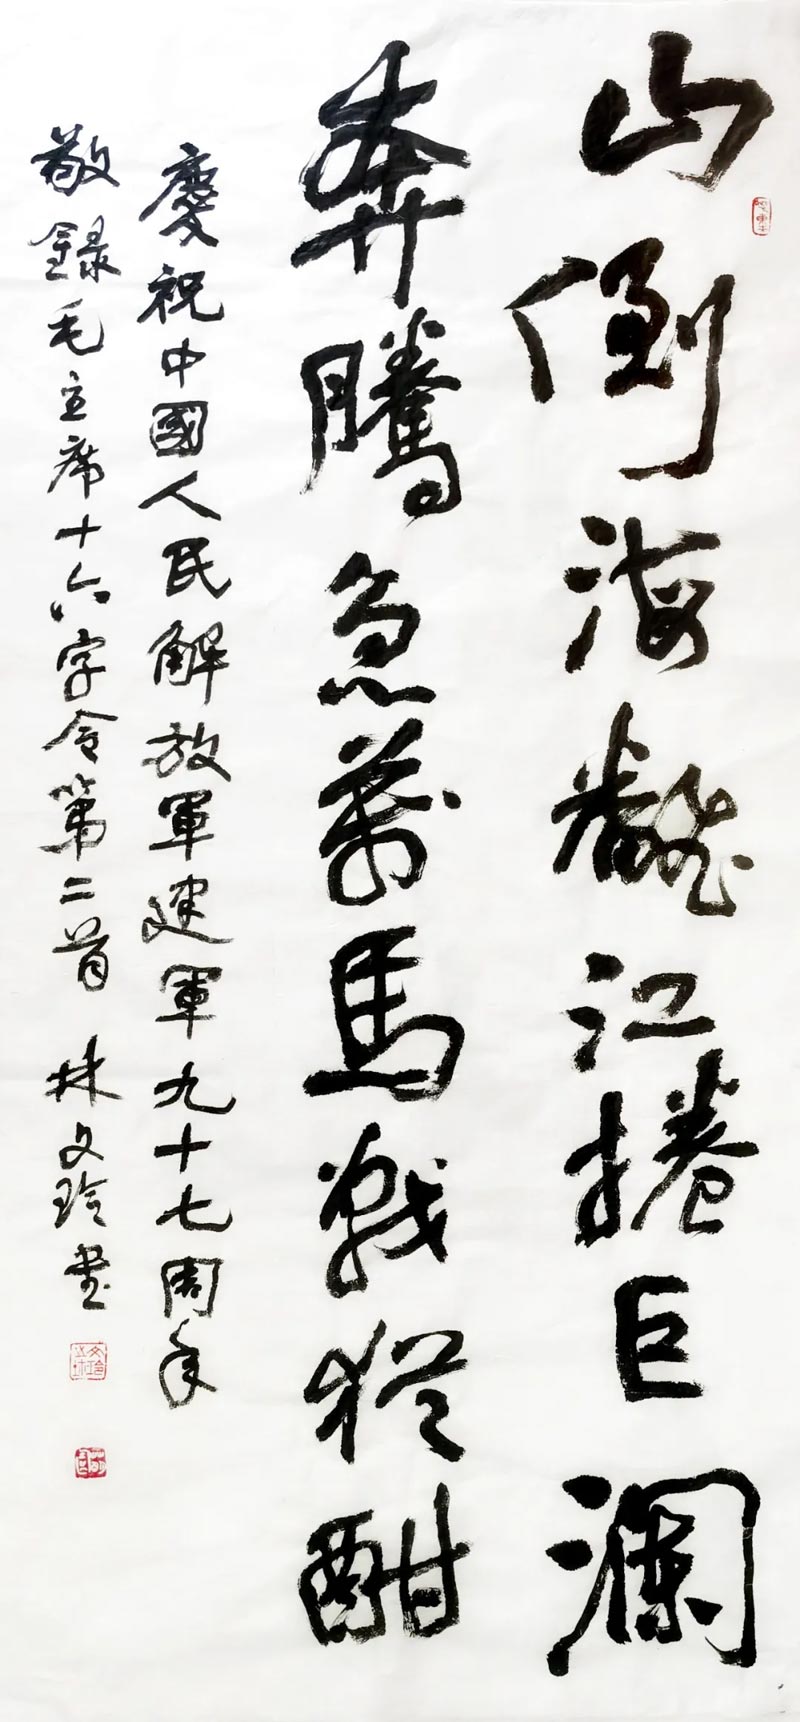 山倒海飜江捲巨瀾
奔騰急萬馬戰猶酣
慶祝中國人民解放軍建軍九十七周年
敬錄毛主席十六字令第二首 林文玲書